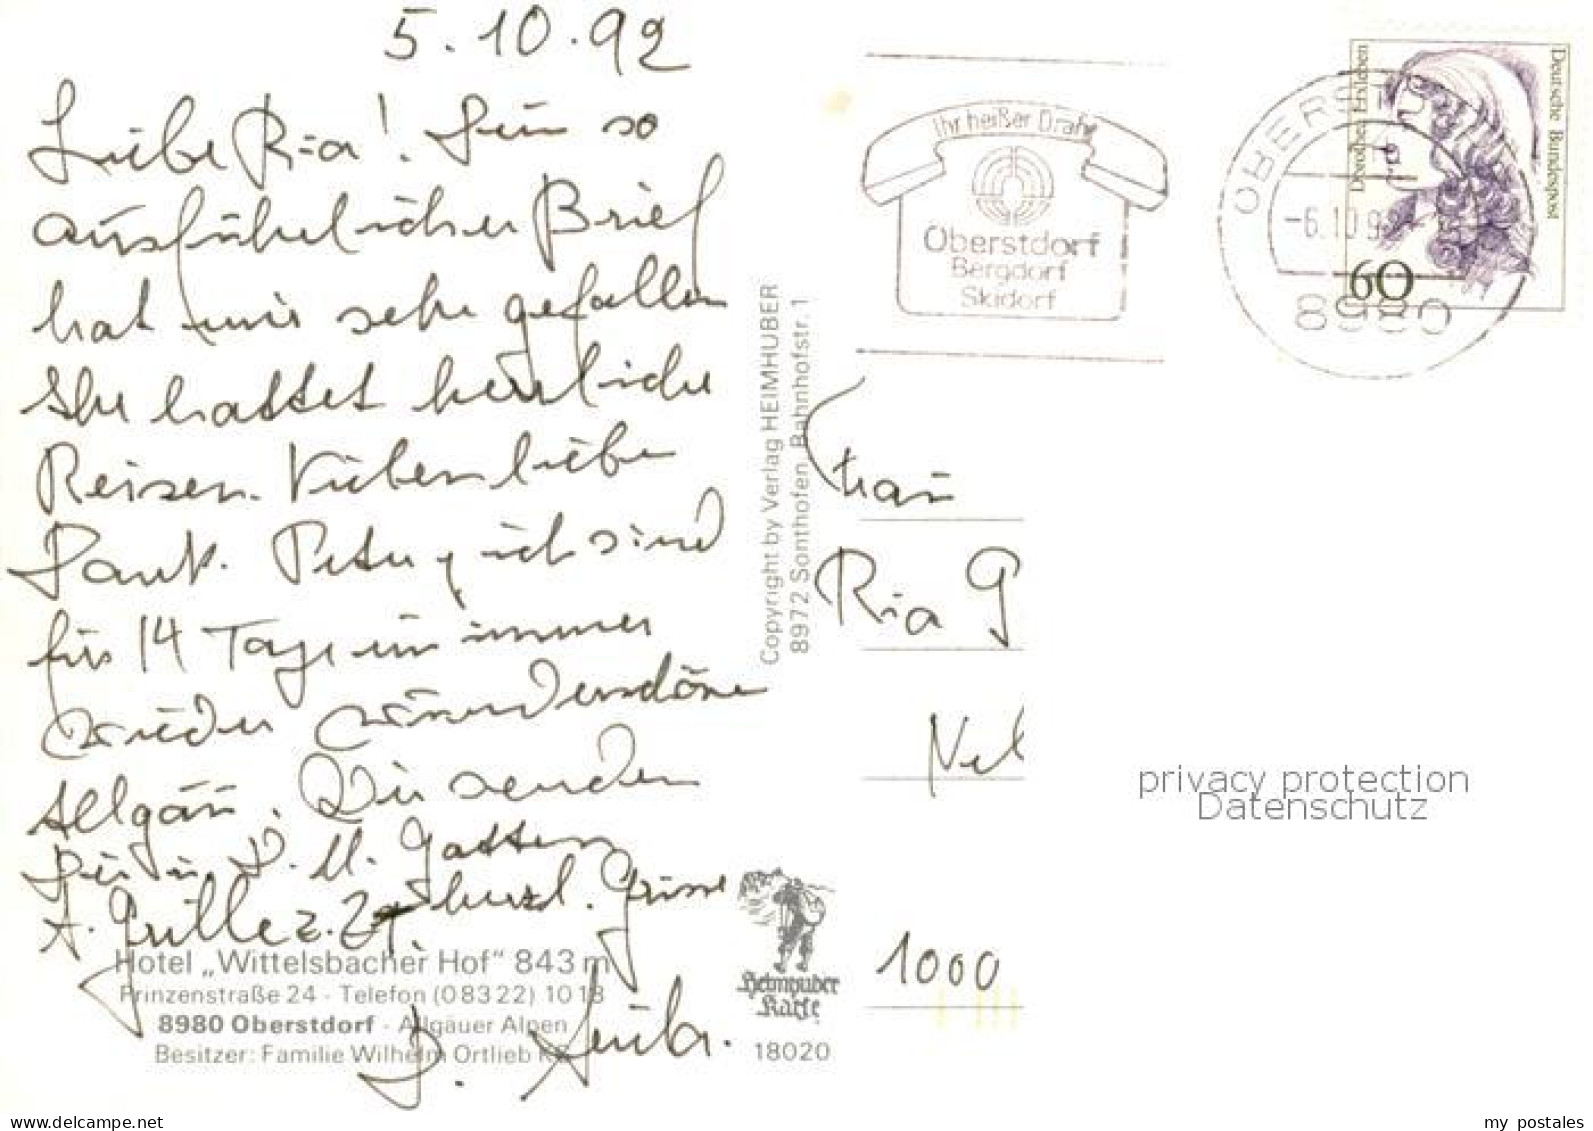 5.10.92
Liebe Ria! Dein so
ausführlicher Brief
hat mir sehr gefallen
Ihr hattet herrliche
Reisen. Vielen lieben
Dank. Peter u. ich sind
für 14 Tage im immer
wieder wunderschönen
Allgäu. Wir senden
Dir u. D. M. Gatten
herzl. Grüsse
D.
Hotel „Wittelsbacher Hof" 843 m
Prinzenstraße 24 - Telefon (08322) 1018
8980 Oberstdorf - Allgäuer Alpen
Besitzer: Familie Wilhelm Ortlieb KG
Copyright by Verlag HEIMHUBER
8972 Sonthofen, Bahnhofstr. 1
Heimhuber
Karte
18020
Ihr heißer Draht
Oberstdorf
Bergdorf
Skidorf
OBERSTD
-6.10.92
8980
Dorothea Erxleben
Deutsche Bundespost
60
Frau
Ria G
1000
privacy protection
Datenschutz
www.delcampe.net
my_postales